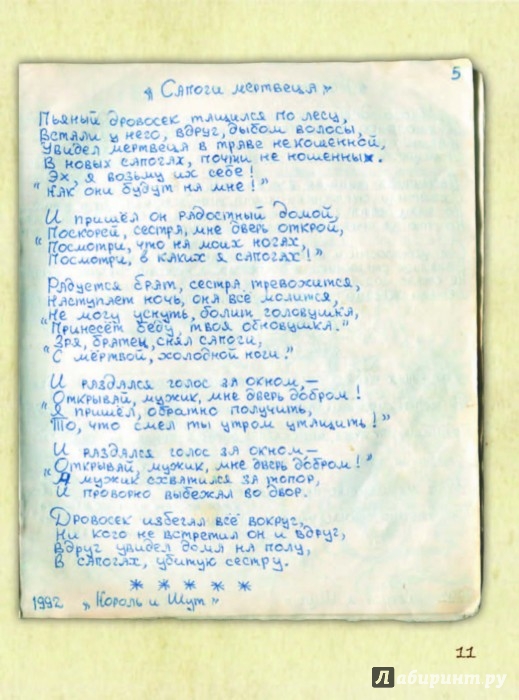 5
„ Сапоги мертвеца "
Пьяный дровосек тащился по лесу,
Встали у него, вдруг, дыбом волосы,
Увидел мертвеца в траве некошенной,
В новых сапогах, почти не ношенных.
Эх, я возьму их себе!
"Как они будут на мне!"
И пришёл он радостный домой,
"Поскорей, сестра, мне дверь открой,
Посмотри, что на моих ногах,
Посмотри, в каких я сапогах!"
Радуется брат, сестра тревожится,
Наступает ночь, она всё молится,
"Не могу уснуть, болит головушка,
Принесёт беду, твоя обновушка."
"Зря, братец, снял сапоги,
С мёртвой, холодной ноги."
И раздался голос за окном,–
"Открывай, мужик, мне дверь добром!
Я пришёл, обратно получить,
То, что смел ты утром утащить!"
И раздался голос за окном–
"Открывай, мужик, мне дверь добром!"
А мужик схватился за топор,
И проворно выбежал во двор.
Дровосек избегал всё вокруг,
Ни кого не встретил он и вдруг,
Вдруг увидел дома на полу,
В сапогах, убитую сестру.
* * * * *
1992 „Король и Шут"
11
Лабиринт.ру